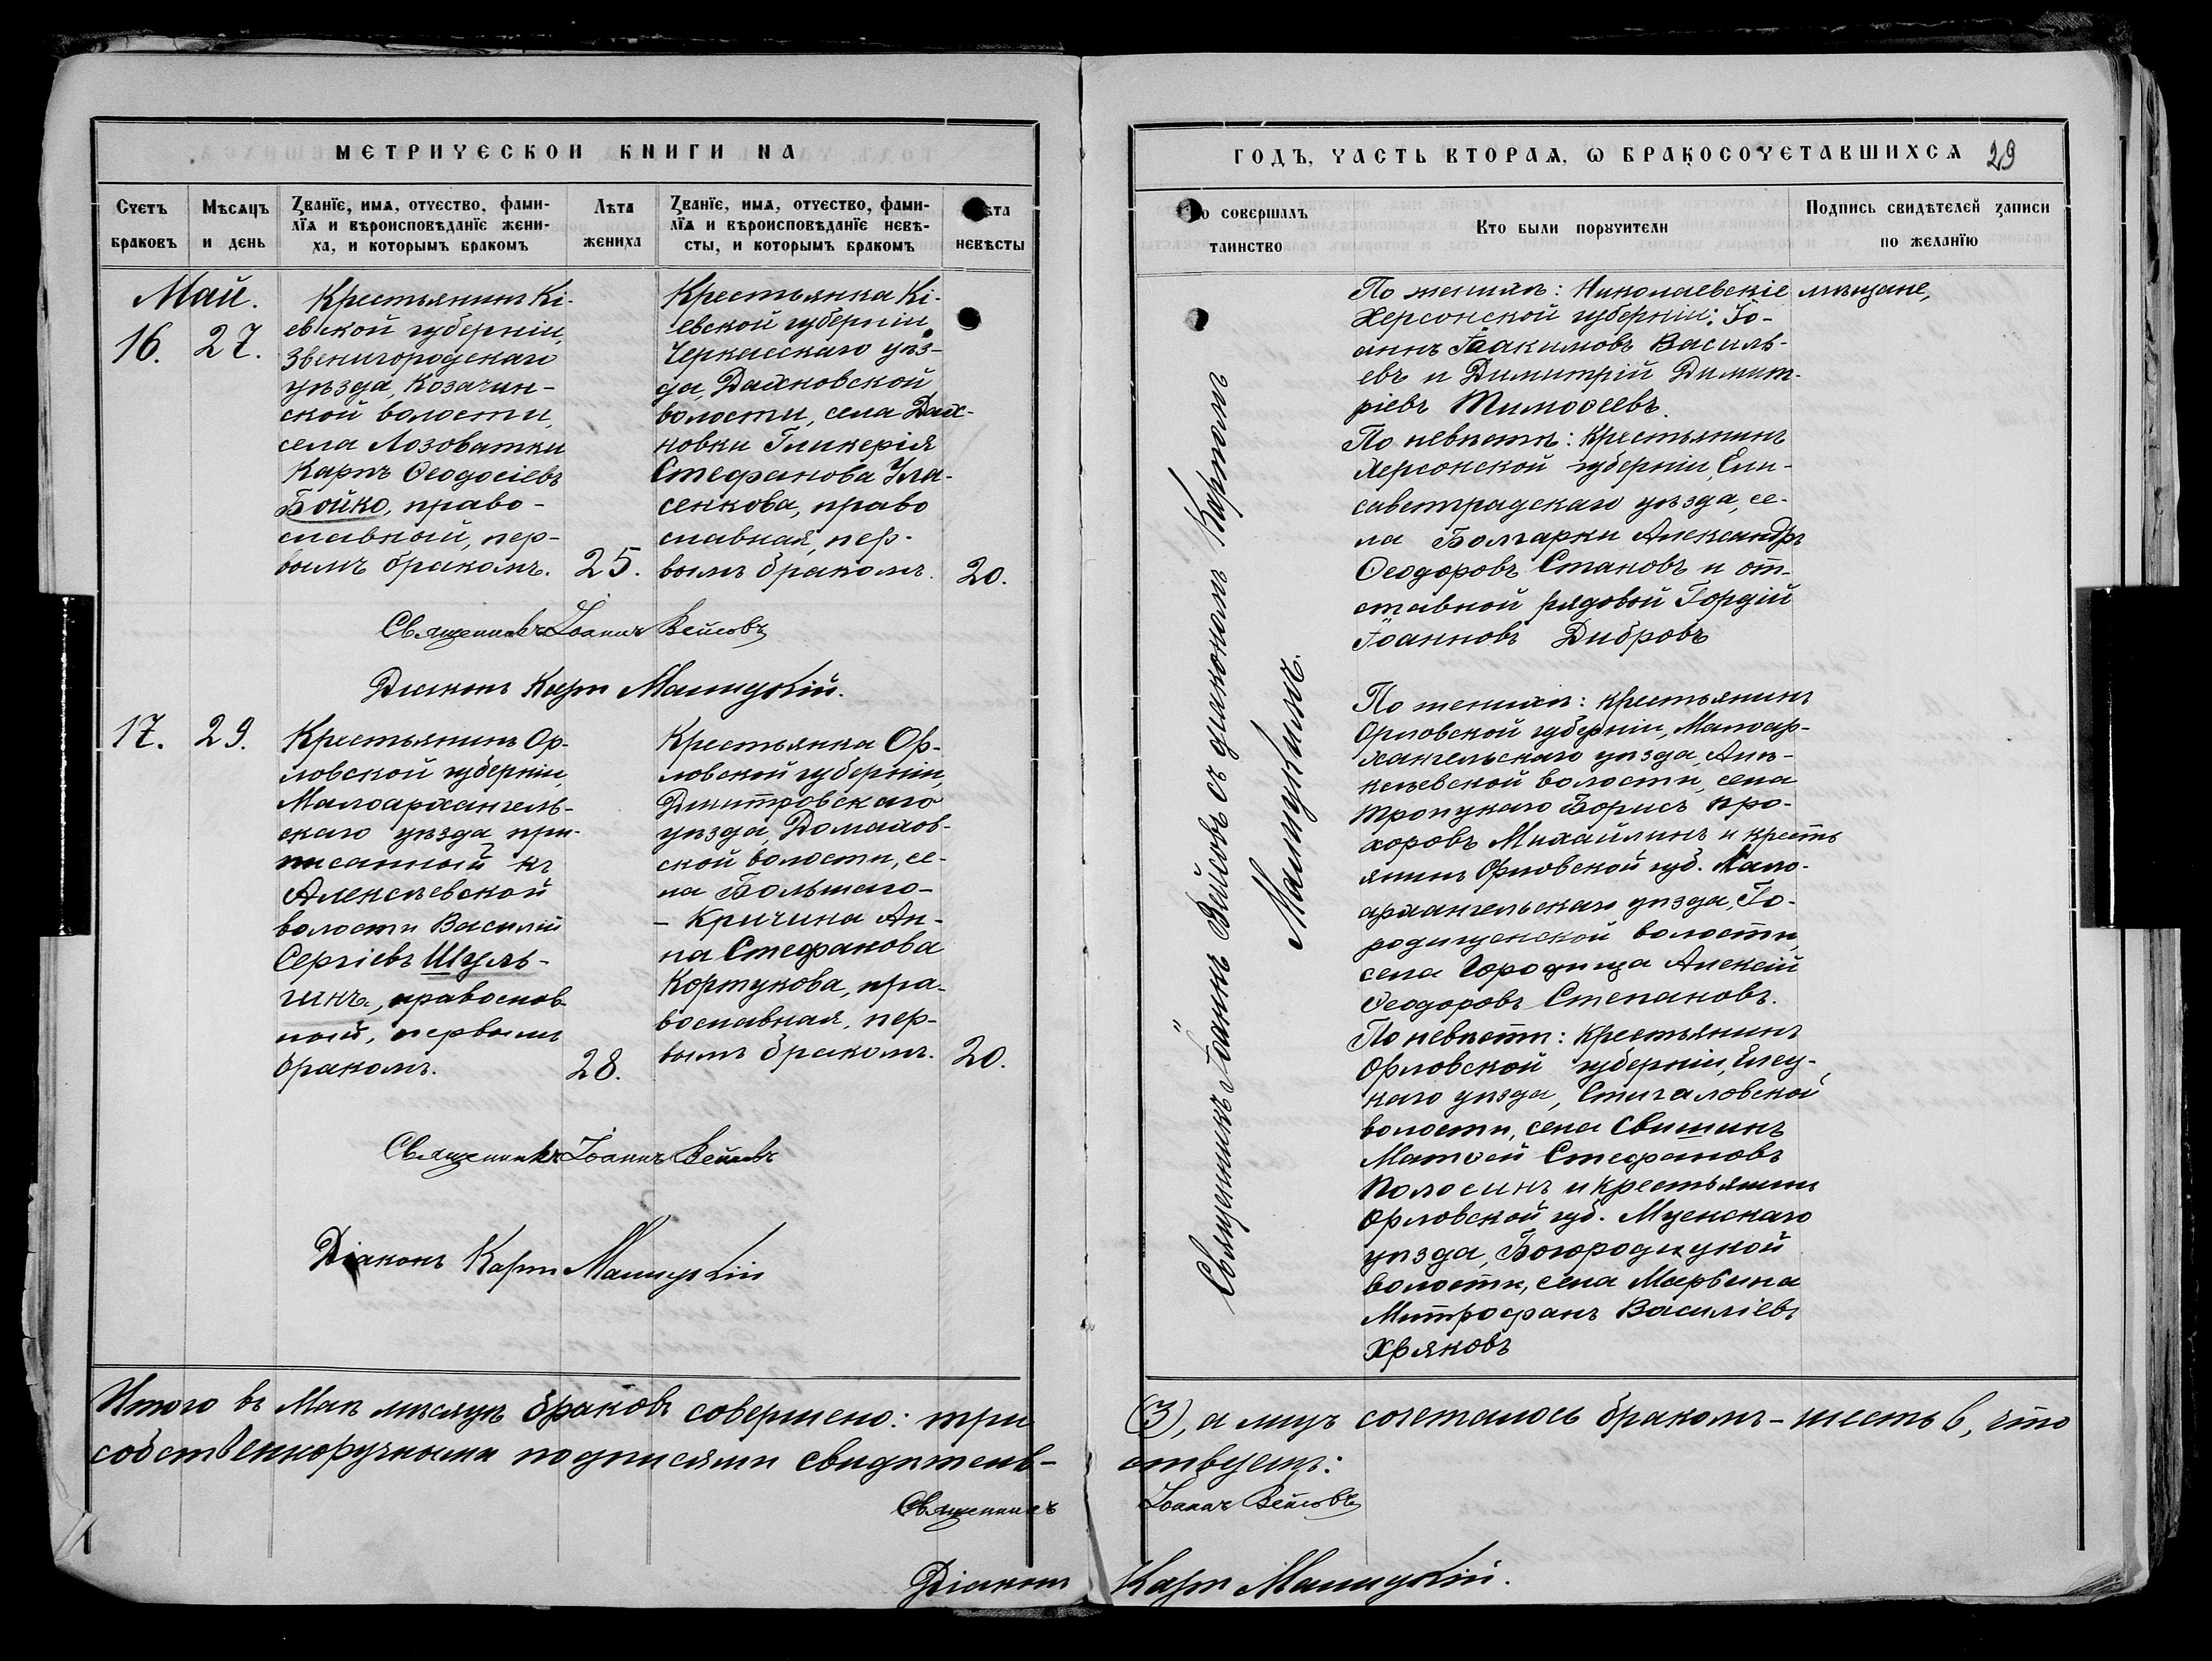 МЕТРИЧЕСКОЙ КНИГИ НА
Счетъ браковъ
Мѣсяцъ и день
Званїе, имѧ, отчество, фами-
лїѧ и вѣроисповѣданїе жени-
ха, и которымъ бракомъ
Лѣта жениха
Званїе, имѧ, отчество, фами-
лїѧ и вѣроисповѣданїе невѣ-
сты, и которымъ бракомъ
ѣта невѣсты
Май.
16. 27.
Крестьянинъ Кі-
евской губерніи,
Звенигородскаго
уѣзда, Козачин-
ской волости,
села Лозоватки
Карпъ Ѳеодосіевъ
Бойко, право-
славный, пер-
вымъ бракомъ.
25.
Крестьянка Кі-
евской губерніи
Черкасскаго уѣз-
да, Дахновской
волости, села Дах-
новки Гликерія
Стефанова Ула-
сенкова, право
славная, пер-
вымъ бракомъ.
20.
Священникъ Іоаннъ Вейсовъ
Діаконъ Карпъ Малицкій.
17. 29.
Крестьянинъ Ор-
ловской губерніи,
Малоархангель-
скаго уѣзда при-
писанный къ
Алексѣевской
волости Василій
Сергіевъ Шуль-
гинъ, православ-
ный, первымъ
бракомъ.
28.
Крестьянка Ор-
ловской губерніи,
Дмитровскаго
уѣзда, Домахов-
ской волости, се-
ла Большаго-
- Кричина Ан-
на Стефанова
Кортукова, пра-
вославная, пер-
вымъ бракомъ.
20.
Священникъ Іоаннъ Вейсовъ
Діаконъ Карпъ Малицкій
Итого въ Маѣ мѣсяцѣ браковъ совершено: три
собственноручными подписями свидѣтель-
Священникъ
Діаконъ
ГОДЪ, ЧАСТЬ ВТОРАѦ, Ѡ БРАКОСОЧЕТАВШИХСѦ
29
о совершалъ
таинство
Кто были поручители
Подпись свидѣтелей записи
по желанїю
Священникъ Іоаннъ Вейсовъ съ діакономъ Карпомъ
Малицкимъ.
По женихѣ: Николаевскіе мѣщане,
Херсонской губерніи: Іо-
аннъ Іоакимовъ Василь-
евъ и Димитрій Димит-
ріевъ Тимоѳеевъ.
По невѣстѣ: Крестьянинъ
Херсонской губерніи, Ели-
саветградскаго уѣзда, се-
ла Болгарки Александръ
Ѳеодоровъ Становъ и от-
ставной рядовой Гордій
Іоанновъ Дибровъ
По женихѣ: крестьянинъ
Орловской губерніи, Малоар-
хангельскаго уѣзда, Алѣ-
ксѣевской волости, села
Троицкаго Борисъ Про-
хоровъ Михайлинъ и кресть
янинъ Орловской губ. Мало-
архангельскаго уѣзда, Го-
родищенской волости,
села Городища Алексѣй
Ѳеодоровъ Степановъ.
По невѣстѣ: Крестьянинъ
Орловской губерніи, Елец-
каго уѣзда, Стигаловской
волости, села Свишинъ
Матѳей Стефановъ
Полосинъ и крестьянинъ
Орловской губ. Мценскаго
уѣзда, Богородицкой
волости, села Мербина
Митрофанъ Василіевъ
Хряковъ
(3), а лицъ сочеталось бракомъ - шесть 6, что
ствуемъ:
Іоаннъ Вейсовъ
Карпъ Малицкій.